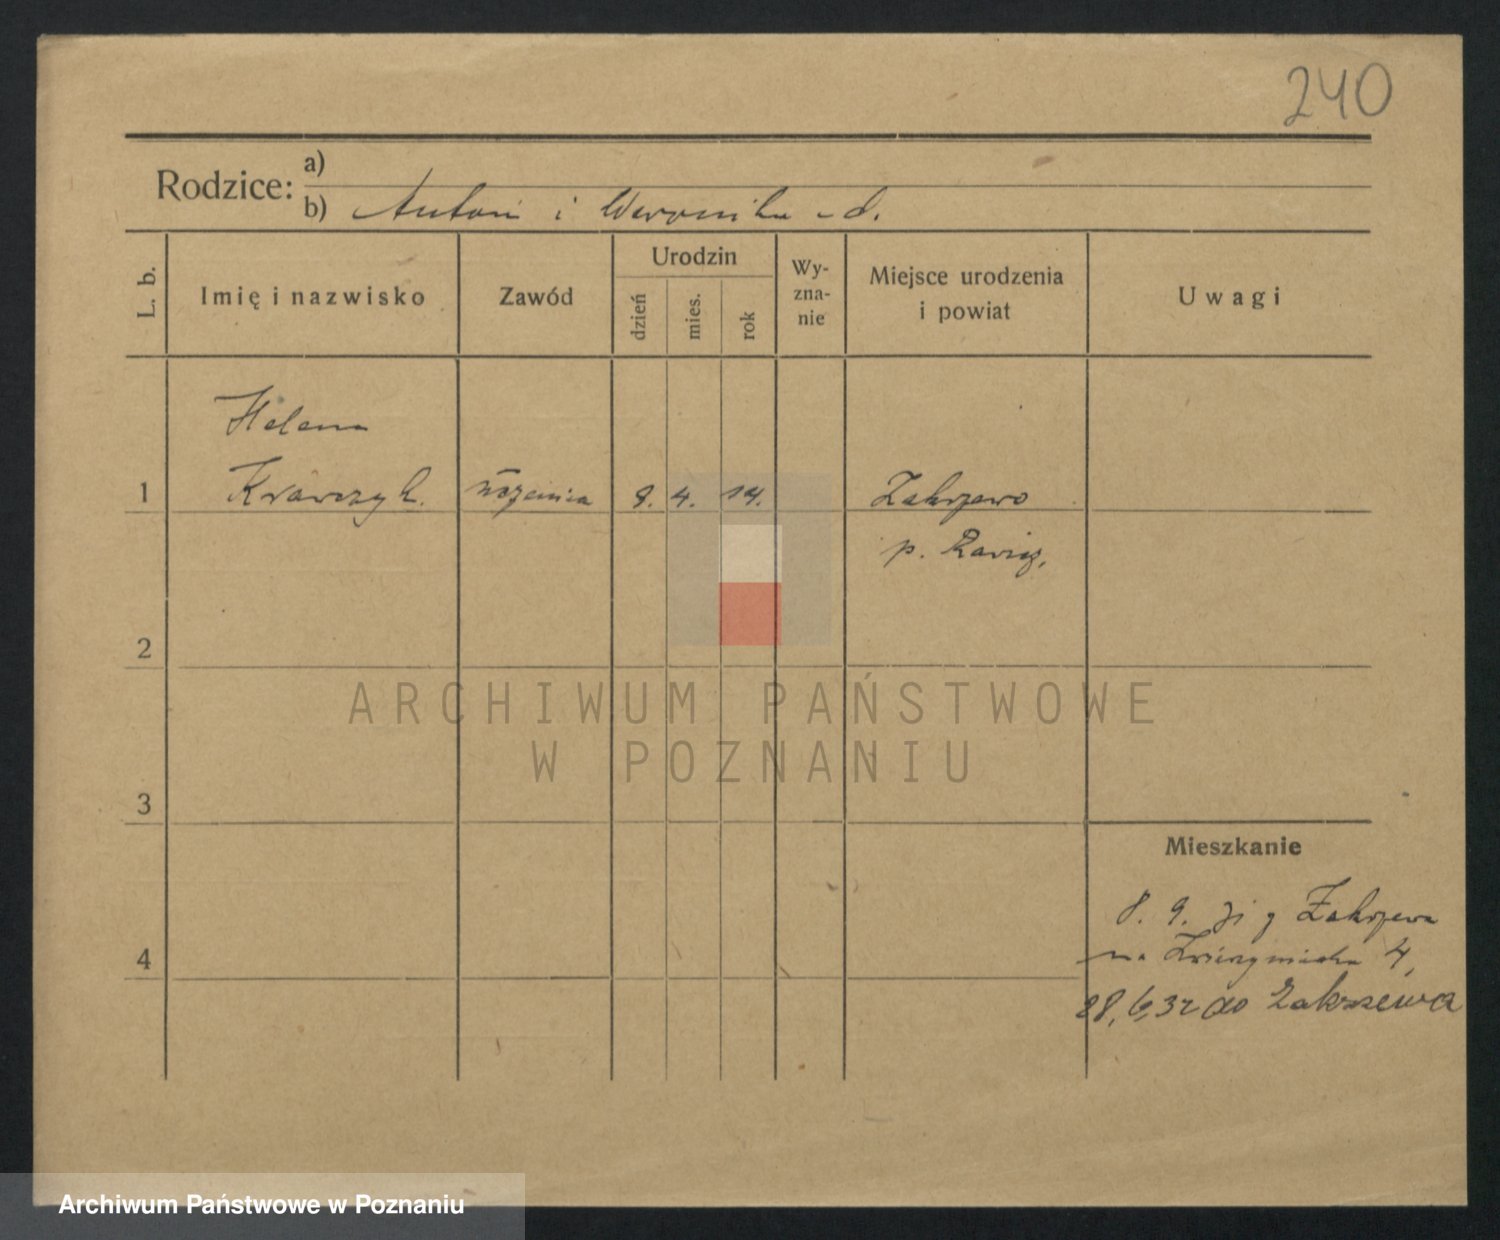 240
Rodzice:
a)
b) Antoni i Weronika
L. b.
Imię i nazwisko
Zawód
Urodzin
dzień
mies.
rok
Wy-
zna-
nie
Miejsce urodzenia
i powiat
Uwagi
Helena
1 Krawczyk. uczennica 8. 4. 14. Zakrzewo
p. Rawicz.
2
ARCHIWUM PAŃSTWOWE
W POZNANIU
3
Mieszkanie
8. 9. 31 z Zakrzewa
na 4.
4
28,6,32 do Zakrzewa
Archiwum Państwowe w Poznaniu